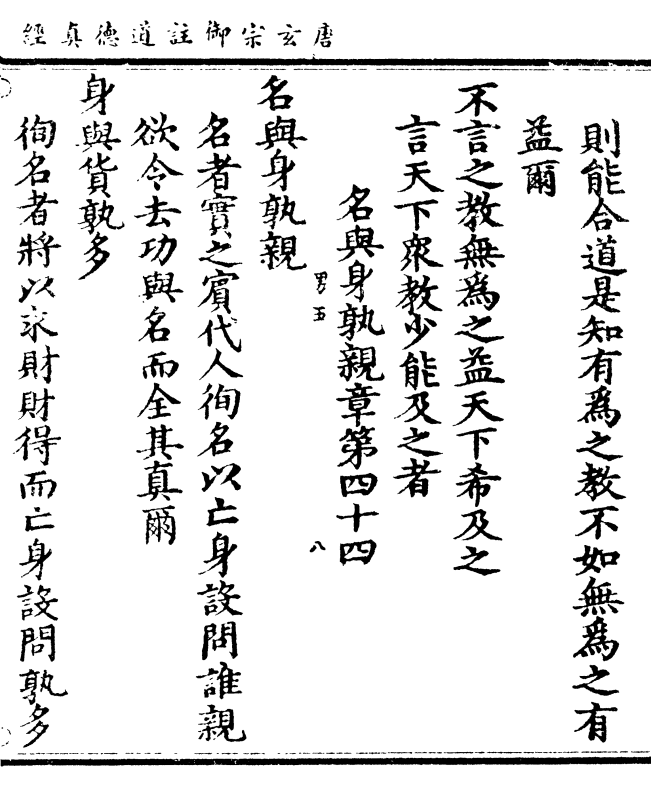 唐玄宗御註道德真經
則能合道是知有爲之教不如無爲之有
益爾
不言之教無爲之益天下希及之
言天下衆教少能及之者
名與身孰親章第四十四
男五
八
名與身孰親
名者實之賓代人徇名以亡身設問誰親
欲令去功與名而全其真爾
身與貨孰多
徇名者將以求財財得而亡身設問孰多